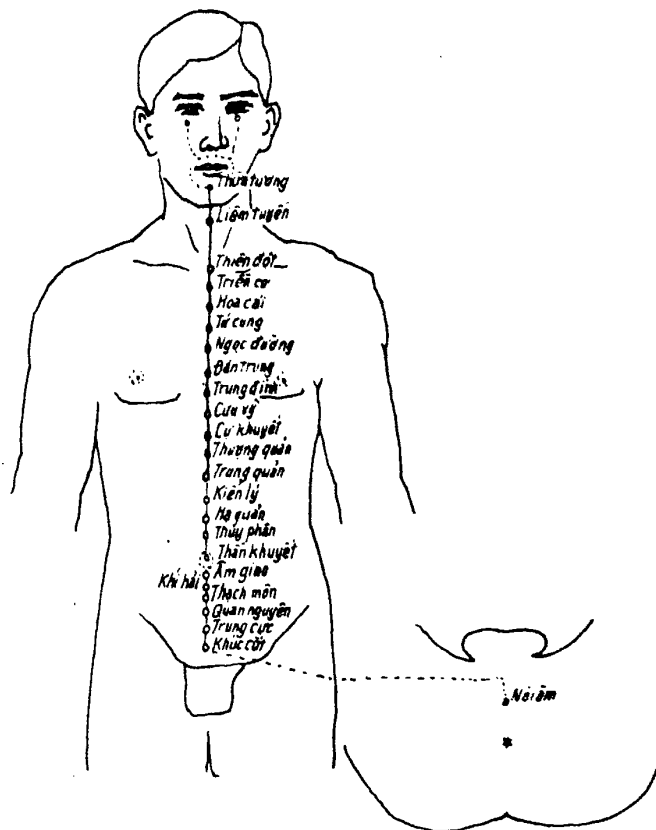 Thừa tương
Liêm tuyền
Thiên đột
Triền cơ
Hoa cái
Tử cung
Ngọc đường
Đản trung
Trung đình
Cưu vỹ
Cự khuyết
Thượng quản
Trung quản
Kiến lý
Hạ quản
Thủy phân
Thần khuyết
Âm giao
Khí hải
Thạch môn
Quan nguyên
Trung cực
Khúc cốt
Hội âm